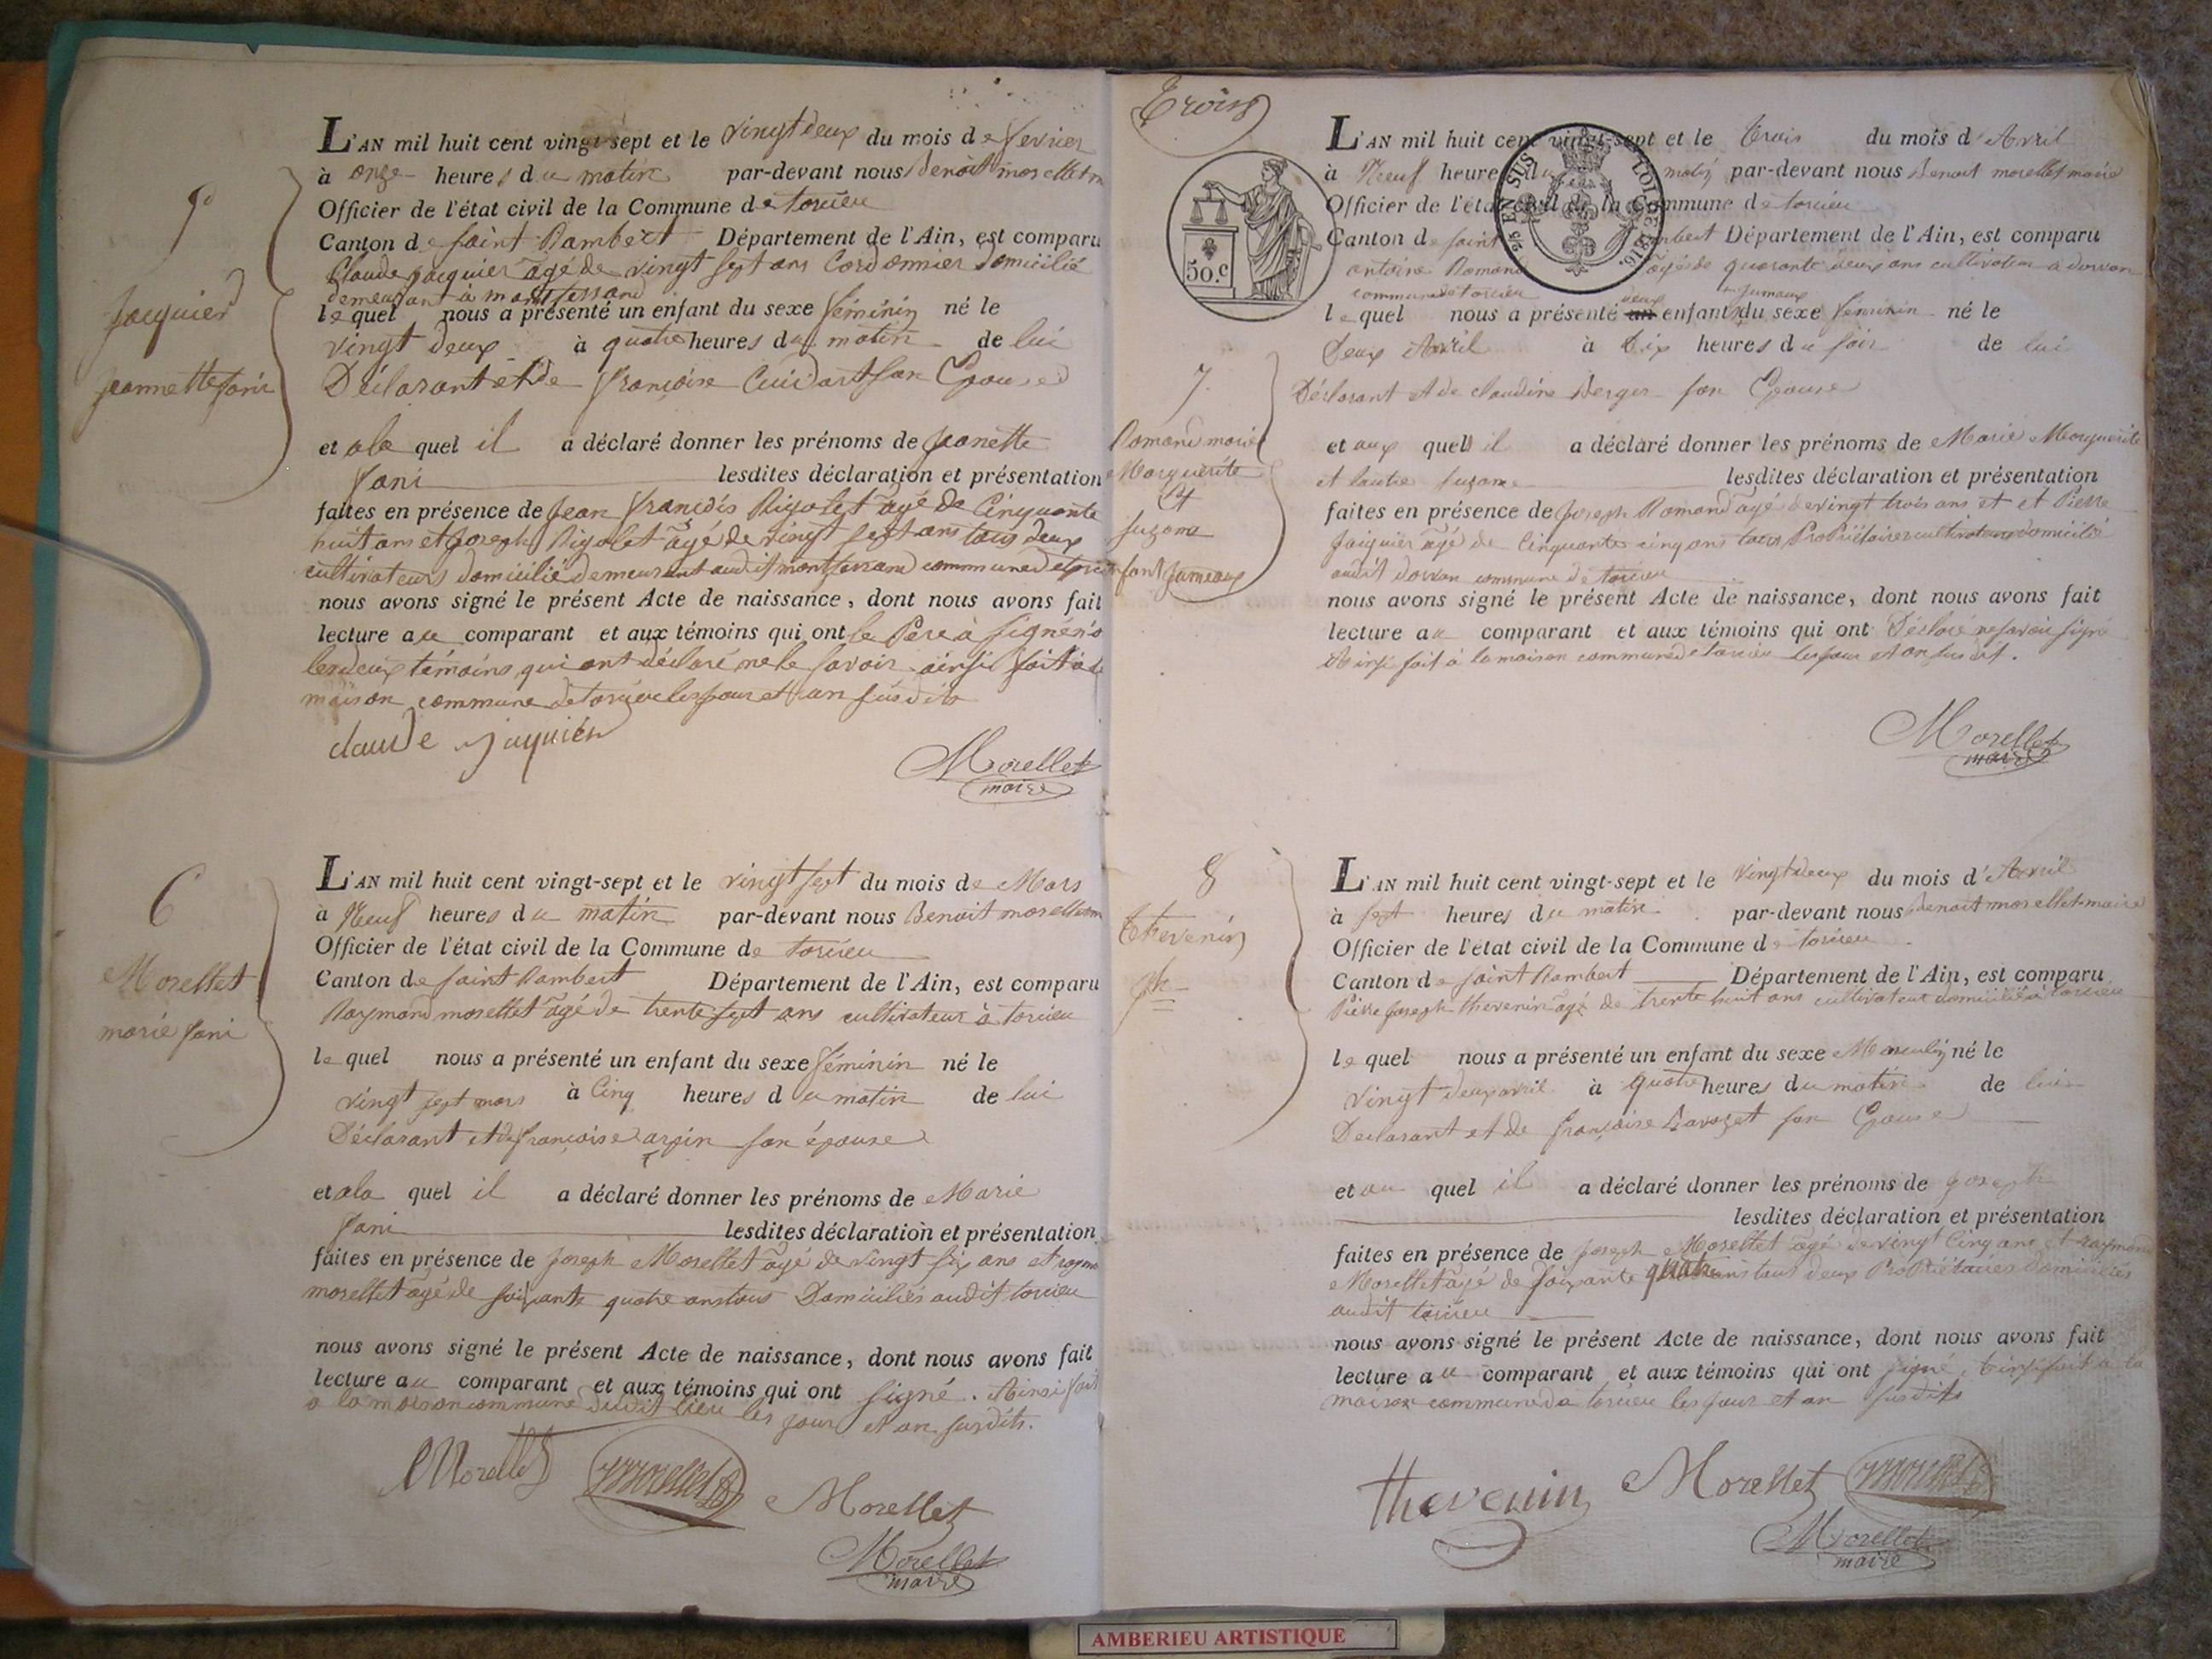 5
Jacquier
Jeannette fani
L'AN mil huit cent vingt-sept et le vingt deux du mois de fevrier
à onze heures du matin par-devant nous Benoit morellet m
Officier de l'état civil de la Commune de torcieu
Canton de saint Rambert Département de l'Ain, est comparu
Claude jacquier agé de vingt sept ans Cordonnier Domicilié
demeurant à montferrand
lequel nous a présenté un enfant du sexe féminin né le
vingt deux à quatre heures du matin de lui
Déclarant et de françoise son Epouse
et a la quel il a déclaré donner les prénoms de Jeanette
fani lesdites déclaration et présentation
faites en présence de Jean françois Rigolet agé de Cinquante
huit ans et Joseph Rigolet agé de vingt sept ans tous deux
cultivateurs domicilié demeurant audit montferrand commune de torcieu
nous avons signé le présent Acte de naissance, dont nous avons fait
lecture au comparant et aux témoins qui ont le Pere à signé
les deux témoins qui ont déclaré ne le savoir ainsi fait a la
maison commune de torcieu les jour et an susdits
claude jaquier
Morellet
maire
6
Morellet
marie fani
L'AN mil huit cent vingt-sept et le vingt sept du mois de Mars
à Neuf heures du matin par-devant nous Benoit morellet m
Officier de l'état civil de la Commune de torcieu
Canton de saint Rambert Département de l'Ain, est comparu
Raymond morellet agé de trente sept ans cultivateur à torcieu
lequel nous a présenté un enfant du sexe féminin né le
vingt sept mars à Cinq heures du matin de lui
Déclarant et de françoise arpin son épouse
et a la quel il a déclaré donner les prénoms de Marie
fani lesdites déclaration et présentation
faites en présence de joseph Morellet agé de vingt six ans et
morellet agé de soixante quatre ans tous Domiciliés audit torcieu
nous avons signé le présent Acte de naissance, dont nous avons fait
lecture au comparant et aux témoins qui ont signé. Ainsi fait
a la maison commune dudit lieu les jour et an susdits.
Morellet
Morellet
Morellet
Morellet
maire
Trois
50.c
LOI DE 1816.
EN SUS
L'AN mil huit cent vingt-sept et le trois du mois d'Avril
à Neuf heures du matin par-devant nous Benoit morellet maire
Officier de l'état civil de la Commune de torcieu
Canton de saint Rambert Département de l'Ain, est comparu
antoine Romand agé de quarante deux ans cultivateur a dorvan
commune de torcieu deux jumaux
lequel nous a présenté un enfants du sexe féminin né le
Deux Avril à Dix heures du soir de lui
7
Déclarant et de claudine Berger son Epouse
Romand marie
Marguerite
et
suzane
enfant jumeaux
et aux quels il a déclaré donner les prénoms de Marie Marguerite
et lautre suzane lesdites déclaration et présentation
faites en présence de joseph Romand agé de vingt trois ans et et Pierre
jaiquier agé de Cinquante cinq ans tous Propriétaires cultivateurs domicilié
audit dorvan commune de torcieu
nous avons signé le présent Acte de naissance, dont nous avons fait
lecture au comparant et aux témoins qui ont Déclaré ne savoir signé
Ainsi fait à la maison commune de torcieu les jour et an susdit.
Morellet
maire
8
Thevenin
jph
L'AN mil huit cent vingt-sept et le vingt deux du mois d'Avril
à sept heures du matin par-devant nous Benoit morellet maire
Officier de l'état civil de la Commune de torcieu
Canton de saint Rambert Département de l'Ain, est comparu
Pierre joseph thevenin agé de trente huit ans cultivateur domicilié à torcieu
lequel nous a présenté un enfant du sexe Masculin né le
vingt deux avril à quatre heures du matin de lui
Declarant et de françoise Ravozet son Epouse
et au quel il a déclaré donner les prénoms de joseph
lesdites déclaration et présentation
faites en présence de joseph Morellet agé de vingt Cinq ans et raymond
Morellet agé de soixante quatre ans tous deux Propriétaires Domiciliés
audit torcieu
nous avons signé le présent Acte de naissance, dont nous avons fait
lecture au comparant et aux témoins qui ont signé. fait à la
maison commune de torcieu les jour et an susdits
thevenin
Morellet
Morellet
Morellet
maire
AMBERIEU ARTISTIQUE